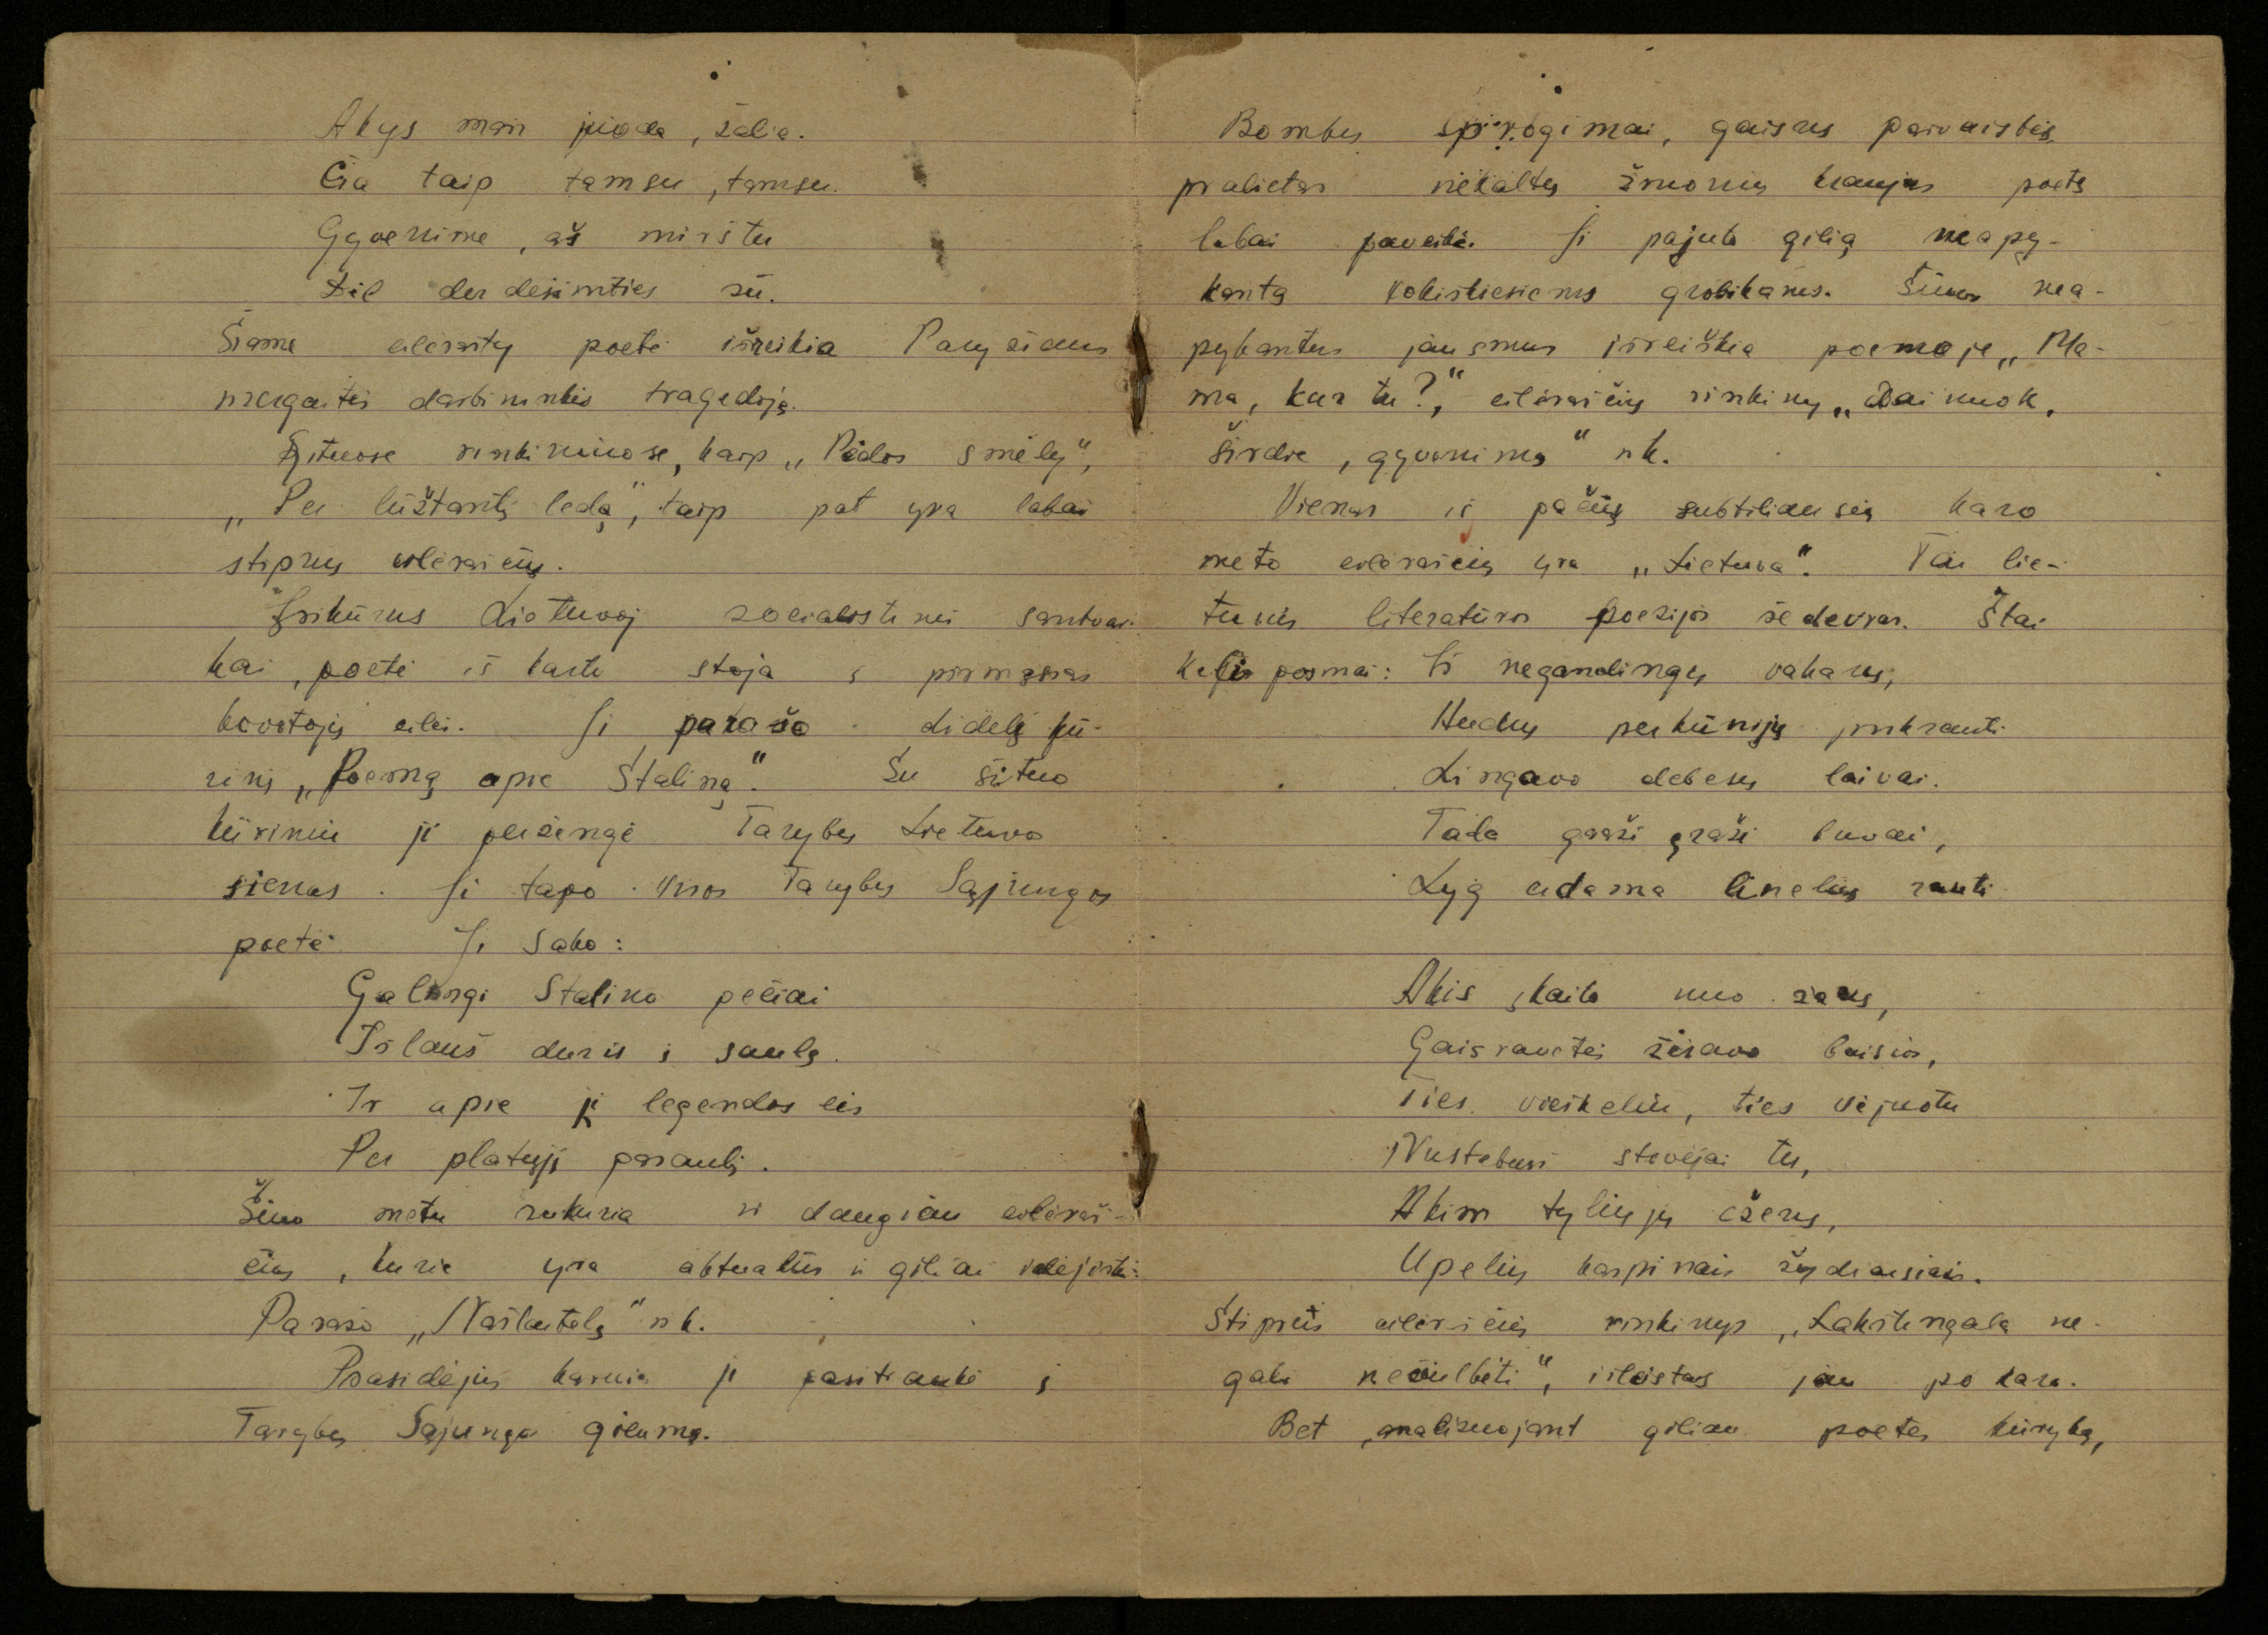 Akys man juoda, žalia.
Čia taip tamsu, tamsu.
Gyvenime, aš mirštu
Dėl dvidešimties sū.
Šiame eilėrašty poetė išreiškia Paryžiaus
mergaitės darbininkės tragediją.
Šituose rinkiniuose, kaip „Pėdos smėly",
„Per lūžtantį ledą", taip pat yra labai
stiprių eilėraščių.
Įsikūrus Lietuvoj socialistinei santvar-
kai, poetė iš karto stoja į pirmąsias
kovotojų eiles. Ji parašo didelį kū-
rinį „Poemą apie Staliną". Su šituo
kūriniu ji peržengė Tarybų Lietuvos
sienas. Ji tapo visos Tarybų Sąjungos
poetė. Ji sako:
Galingi Stalino pečiai
Išlauš duris į saulę.
Ir apie jį legendos eis
Per platųjį pasaulį.
Šiuo metu sukuria ir daugiau eilėraš-
čių, kurie yra aktualūs ir giliai idėjiški.
Parašo „Našlaitėlę" ir k.
Prasidėjus karui ji pasitraukė į
Tarybų Sąjungos gilumą.
Bombų sprogimai, gaisrų pašvaistės,
pralietas nekaltų žmonių kraujas poetę
labai paveikė. Ji pajuto gilią neapy-
kantą vokiškiesiems grobikams. Šiuos nea-
pykantos jausmus išreiškia poemoje „Ma-
ma, kur tu?", eilėraščių rinkiny „Dainuok,
širdie, gyvenimą" ir k.
Vienas iš pačių subtiliausių karo
meto eilėraščių yra „Lietuva". Tai lie-
tuvių literatūros poezijos šedevras. Štai
kelis posmai: Iš negandingų vakarų,
Audrų perkūnijų prikrauti
Lingavo debesų laivai.
Tada graži graži buvai,
Lyg eidama linelių rauti
Akis įkaito nuo žarų,
Gaisravietės žėravo baisios,
Ties vieškeliu, ties vėjuotu
Nustebusi stovėjai tu,
Akim tyliųjų ežerų,
Upelių kaspinais žydraisiais.
Stiprus eilėraščių rinkinys „Lakštingala ne-
gali nečiulbėti", išleistas jau po karo.
Bet, analizuojant giliau poetės kūrybą,